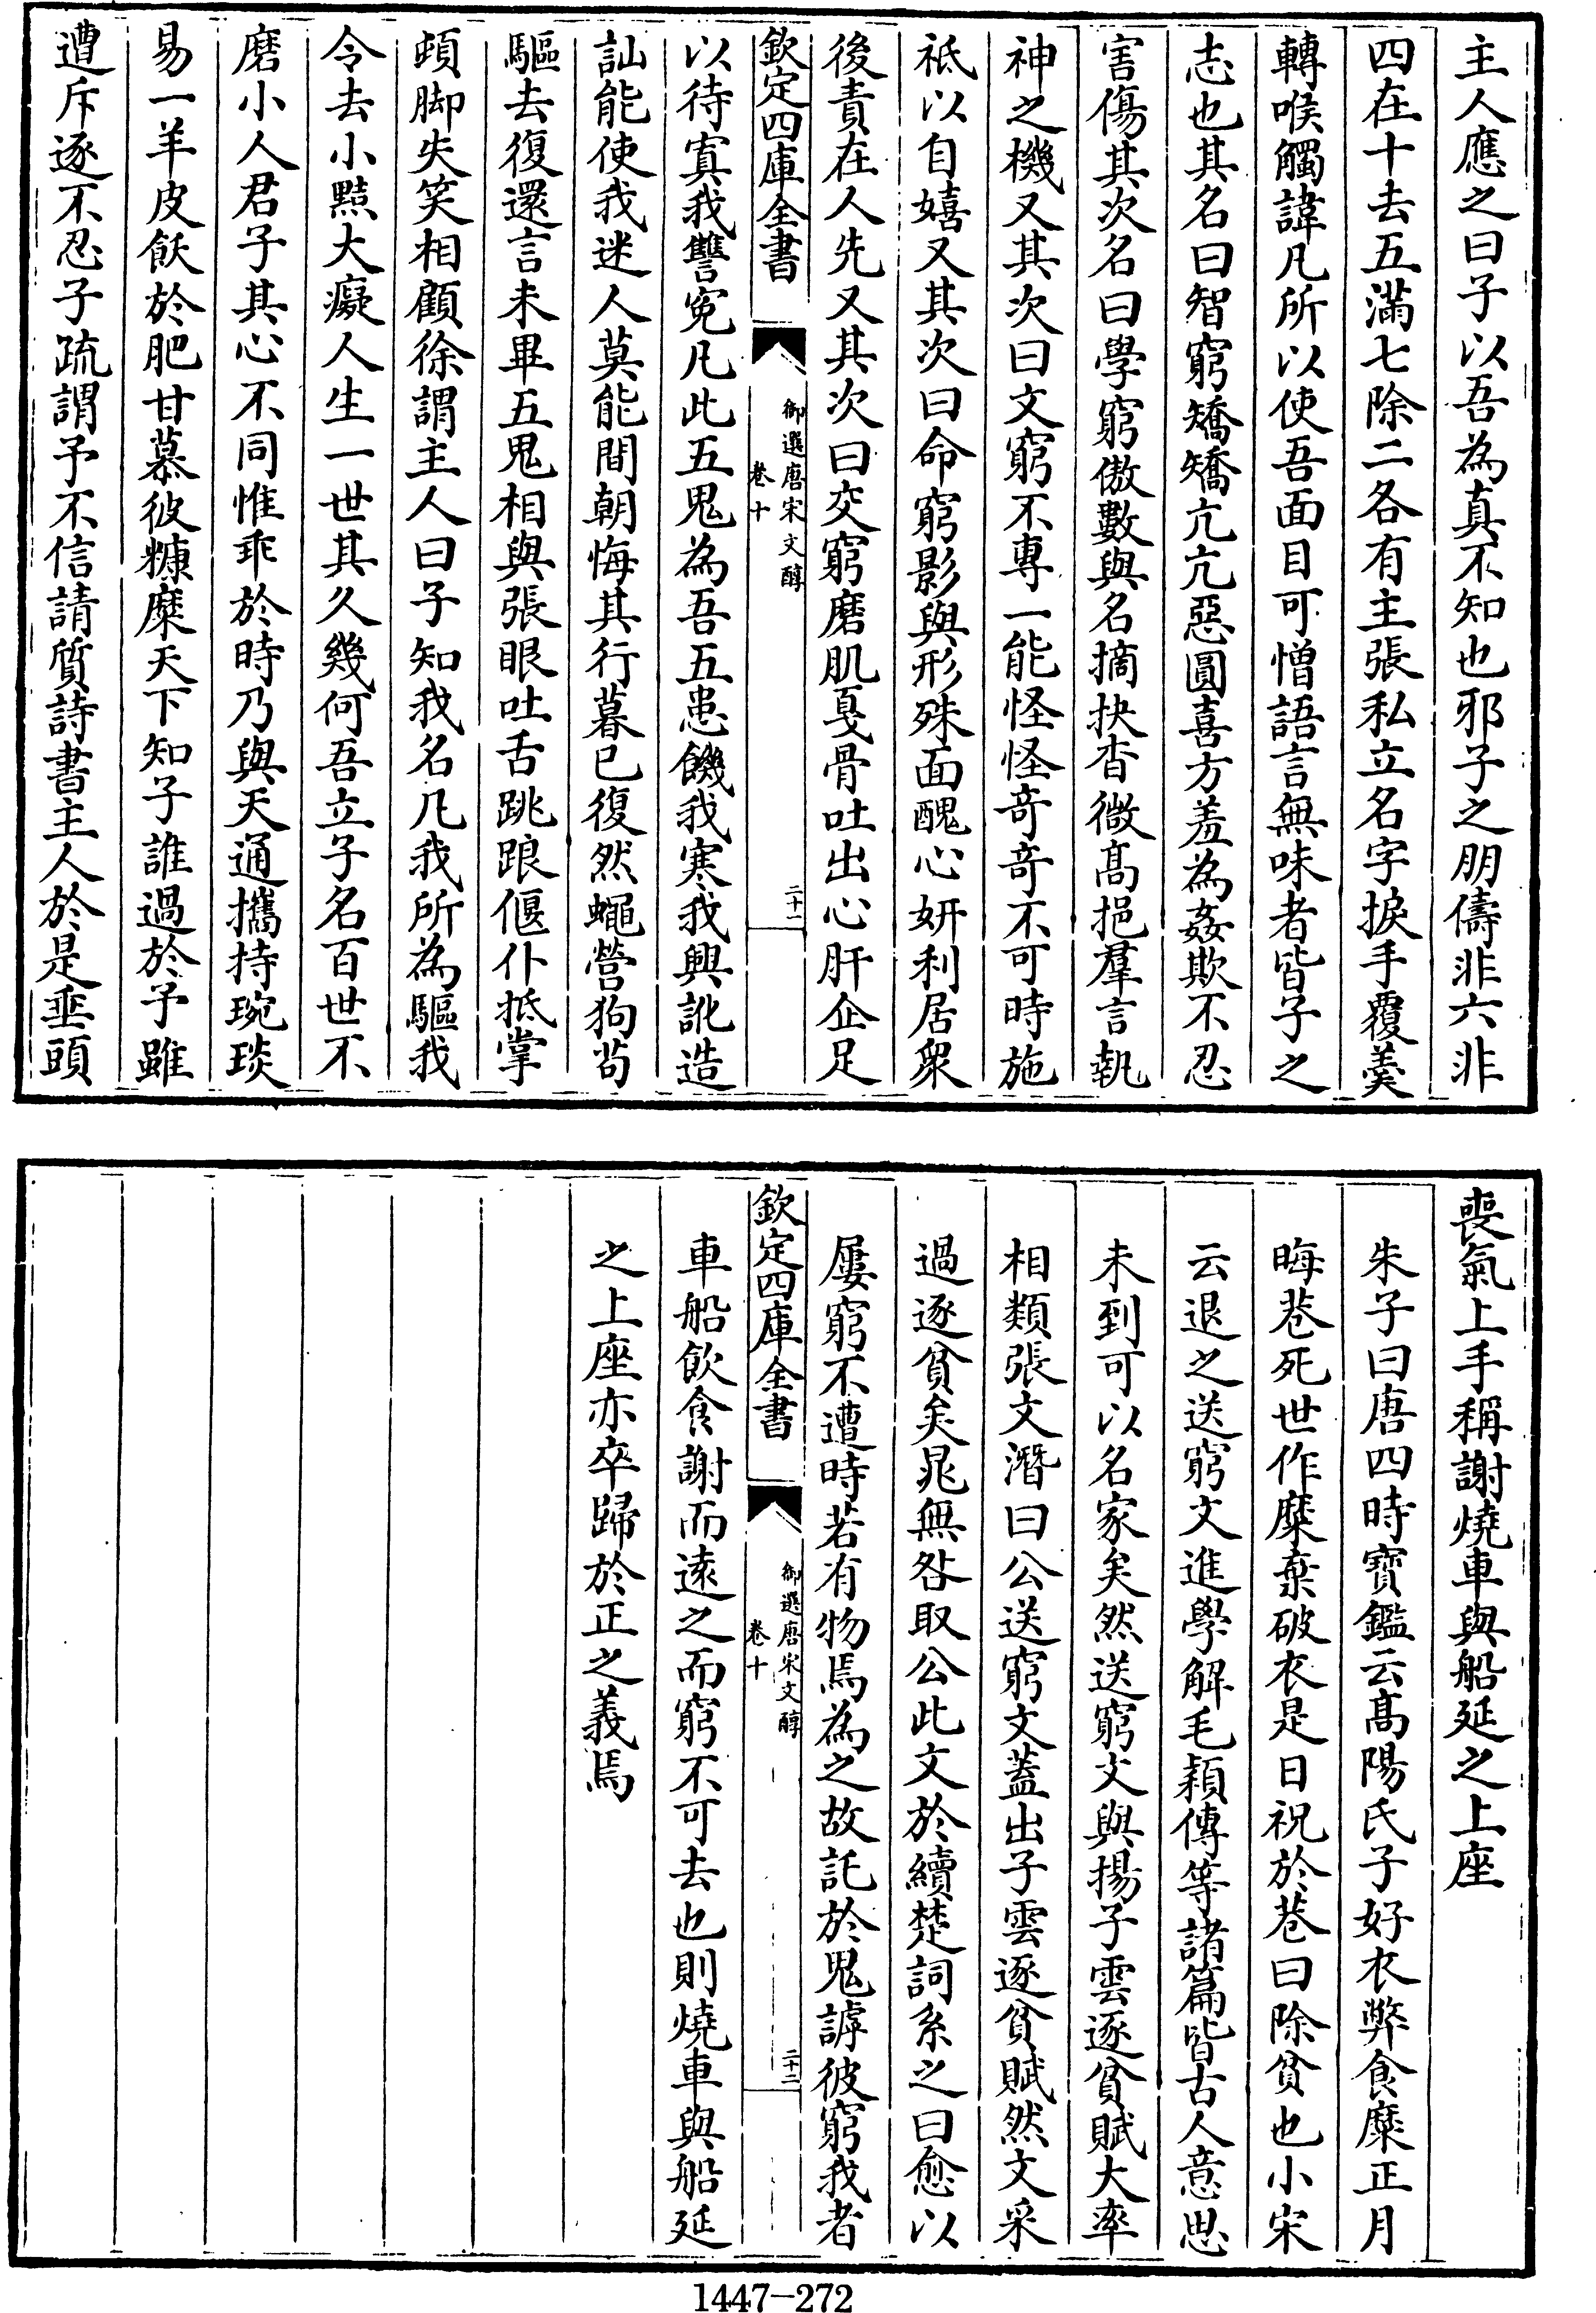 主人應之曰子以吾為真不知也邪子之朋儔非六非
四在十去五滿七除二各有主張私立名字捩手覆羹
轉喉觸諱凡所以使吾面目可憎語言無味者皆子之
志也其名曰智窮矯矯亢亢惡圓喜方羞為姦欺不忍
害傷其次名曰學窮傲數與名摘抉杳微高挹羣言執
神之機又其次曰文窮不專一能怪怪奇奇不可時施
祗以自嬉又其次曰命窮影與形殊面醜心妍利居衆
後責在人先又其次曰交窮磨肌戛骨吐出心肝企足
欽定四庫全書
御選唐宋文醇
卷十
二十一
以待寘我讐寃凡此五鬼為吾五患饑我寒我興訛造
訕能使我迷人莫能間朝悔其行暮已復然蠅營狗苟
驅去復還言未畢五鬼相與張眼吐舌跳踉偃仆抵掌
頓脚失笑相顧徐謂主人曰子知我名凡我所為驅我
令去小黠大癡人生一世其久幾何吾立子名百世不
磨小人君子其心不同惟乖於時乃與天通攜持琬琰
易一羊皮飫於肥甘慕彼糠糜天下知子誰過於予雖
遭斥逐不忍子疏謂予不信請質詩書主人於是垂頭
喪氣上手稱謝燒車與船延之上座
朱子曰唐四時寶鑑云高陽氏子好衣弊食糜正月
晦巷死世作糜棄破衣是日祝於巷曰除貧也小宋
云退之送窮文進學解毛穎傳等諸篇皆古人意思
未到可以名家矣然送窮文與揚子雲逐貧賦大率
相類張文潛曰公送窮文蓋出子雲逐貧賦然文采
過逐貧矣晁無咎取公此文於續楚詞系之曰愈以
屢窮不遭時若有物焉為之故託於鬼謔彼窮我者
欽定四庫全書
御選唐宋文醇
卷十
二十二
車船飲食謝而遠之而窮不可去也則燒車與船延
之上座亦卒歸於正之義焉
1447-272